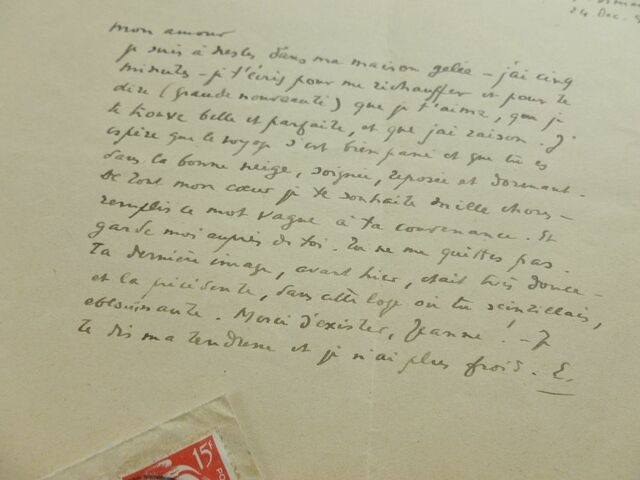 24 Dec.
mon amour
je suis à Nesles dans ma maison gelée – j'ai cinq
minutes – je t'écris pour me réchauffer et pour te
dire (grande nouveauté) que je t'aime, que je
te trouve belle et parfaite, et que j'ai raison. J'
espère que le voyage s'est bien passé et que tu es
dans la bonne neige, soignée, reposée et dormant.
De tout mon cœur je te souhaite mille choses –
remplis ce mot vague à ta convenance. Et
garde moi auprès de toi. Tu ne me quittes pas.
Ta dernière image, avant hier, était très douce –
et la précédente, dans cette loge où tu scintillais,
éblouissante. Merci d'exister, Jeanne. – Je
te dis ma tendresse et je n'ai plus froid. E.
15F
PO